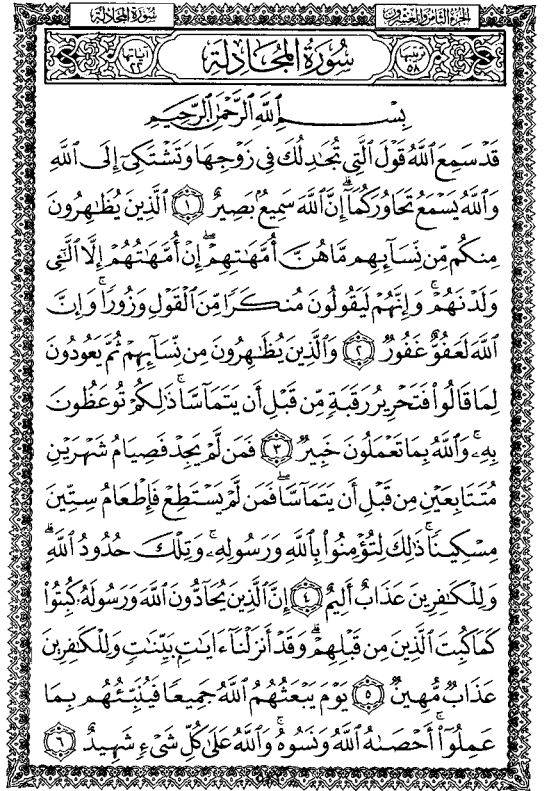 سُورَةُ المُجَادلة
الجزء الثامن والعشرون
ترتيبها ٥٨
سُورَةُ المُجَادِلَة
آياتها ٢٢
بِسْمِ ٱللَّهِ ٱلرَّحْمَٰنِ ٱلرَّحِيمِ
قَدْ سَمِعَ ٱللَّهُ قَوْلَ ٱلَّتِي تُجَٰدِلُكَ فِي زَوْجِهَا وَتَشْتَكِيٓ إِلَى ٱللَّهِ
وَٱللَّهُ يَسْمَعُ تَحَاوُرَكُمَآ ۚ إِنَّ ٱللَّهَ سَمِيعُۢ بَصِيرٌ ١ ٱلَّذِينَ يُظَٰهِرُونَ
مِنكُم مِّن نِّسَآئِهِم مَّا هُنَّ أُمَّهَٰتِهِمْ ۖ إِنْ أُمَّهَٰتُهُمْ إِلَّا ٱلَّٰٓـِٔي
وَلَدْنَهُمْ ۚ وَإِنَّهُمْ لَيَقُولُونَ مُنكَرًا مِّنَ ٱلْقَوْلِ وَزُورًا ۚ وَإِنَّ
ٱللَّهَ لَعَفُوٌّ غَفُورٌ ٢ وَٱلَّذِينَ يُظَٰهِرُونَ مِن نِّسَآئِهِمْ ثُمَّ يَعُودُونَ
لِمَا قَالُوا۟ فَتَحْرِيرُ رَقَبَةٍ مِّن قَبْلِ أَن يَتَمَآسَّا ۚ ذَٰلِكُمْ تُوعَظُونَ
بِهِۦ ۚ وَٱللَّهُ بِمَا تَعْمَلُونَ خَبِيرٌ ٣ فَمَن لَّمْ يَجِدْ فَصِيَامُ شَهْرَيْنِ
مُتَتَابِعَيْنِ مِن قَبْلِ أَن يَتَمَآسَّا ۖ فَمَن لَّمْ يَسْتَطِعْ فَإِطْعَامُ سِتِّينَ
مِسْكِينًا ۚ ذَٰلِكَ لِتُؤْمِنُوا۟ بِٱللَّهِ وَرَسُولِهِۦ ۚ وَتِلْكَ حُدُودُ ٱللَّهِ ۗ
وَلِلْكَٰفِرِينَ عَذَابٌ أَلِيمٌ ٤ إِنَّ ٱلَّذِينَ يُحَآدُّونَ ٱللَّهَ وَرَسُولَهُۥ كُبِتُوا۟
كَمَا كُبِتَ ٱلَّذِينَ مِن قَبْلِهِمْ ۚ وَقَدْ أَنزَلْنَآ ءَايَٰتٍۭ بَيِّنَٰتٍ ۚ وَلِلْكَٰفِرِينَ
عَذَابٌ مُّهِينٌ ٥ يَوْمَ يَبْعَثُهُمُ ٱللَّهُ جَمِيعًا فَيُنَبِّئُهُم بِمَا
عَمِلُوٓا۟ ۚ أَحْصَىٰهُ ٱللَّهُ وَنَسُوهُ ۚ وَٱللَّهُ عَلَىٰ كُلِّ شَيْءٍ شَهِيدٌ ٦